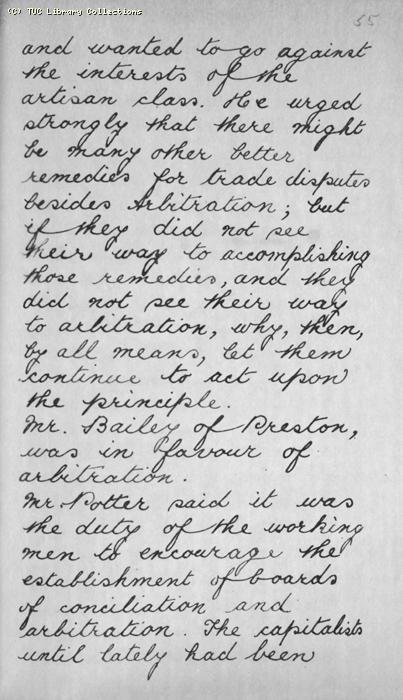 (C) TUC Library Collections
55
and wanted to go against
the interests of the
artisan class. He urged
strongly that there might
be many other better
remedies for trade disputes
besides Arbitration; but
if they did not see
their way to accomplishing
those remedies, and they
did not see their way
to arbitration, why, then,
by all means, let them
continue to act upon
the principle.
Mr. Bailey of Preston,
was in favour of
arbitration.
Mr. Potter said it was
the duty of the working
men to encourage the
establishment of boards
of conciliation and
arbitration. The capitalists
until lately had been